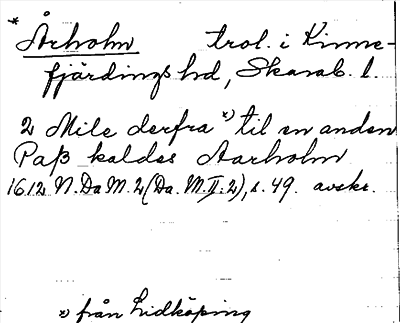 * Årholm trol. i Kinne-
fjärdings hd, Skarab. l.
2 Mile derfra x) til en anden
Paß kaldes Aarholm
1612 N. Da M. 2 (Da. M. II: 2), s. 49. avskr.
x) från Lidköping